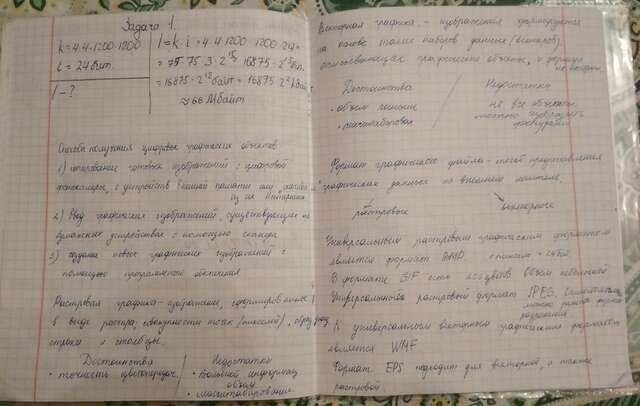 Задача 1.
k = 4·4·1200·1200
i = 24 бит
I - ?
I = k · i = 4·4·1200·1200·24 =
= 75·75·3·2 16875·2
= 16875·2 байт = 16875·2
≈ 66 Мбайт
Способы получения цифровых графических объектов
1) копирование готовых изображений с цифровой
фотокамеры, с устройств внешней памяти или
из Интернета
2) Ввод графических изображений, существующих на
бумажных с помощью сканера
3) создание новых графических изображений с
помощью программного обеспечения
Растровая графика - изображение, сформированное
в виде растра, совокупности точек (пикселей), образующих
строки и столбцы.
Достоинства
• точность цветопередачи
Недостатки
• Большой информац
объём
• масштабирование
Векторная графика - изображения формируются
на основе наборов данных (векторов),
описывающих графические объекты, и формул
их построен
Достоинства
• объем меньше
• масштабировая
Недостатки
не все объекты
можно изобразить
Формат графического файла - способ представления
графических данных на внешнем носителе.
растровые
векторные
Универсальным растровым графическим форматом
является формат BMP
В формате GIF есть 256 цветов Объем небольшой
Универсальный растровый формат JPEG.
К универсальным векторным графическим форматам
является WMF
Формат EPS подходит для векторной, а также
растровой